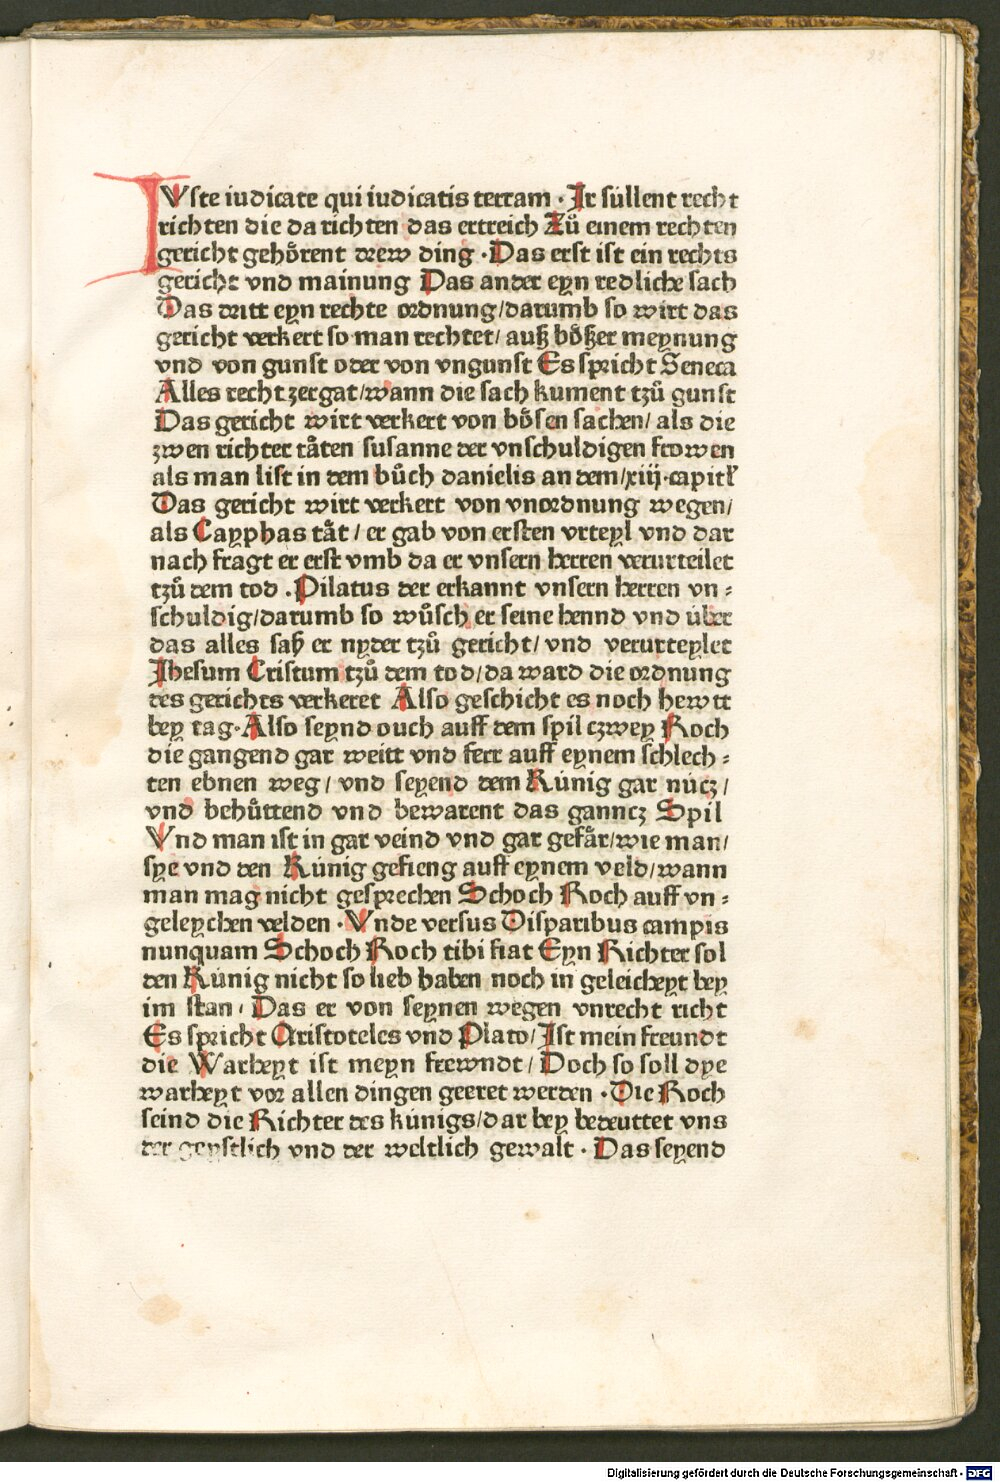 22
IVste iudicate qui iudicatis terram · Ir súllent recht
richten die da richten das ertreich Zů einem rechten
gericht gehörent drew ding · Das erst ist ein rechts
gericht vnd mainung Das ander eyn redliche sach
Das dritt eyn rechte ordnung/darumb so wirt das
gericht verkert so man rechtet/ auß bößer meynung
vnd von gunst oder von vngunst Es spricht Seneca
Alles recht zergat/wann die sach kument tzů gunst
Das gericht wirt verkert von bösen sachen/ als die
zwen richter tåten susanne der vnschuldigen frowen
als man list in dem bůch danielis an dem/xiij·capitl'
Das gericht wirt verkert von vnordnung wegen/
als Cayphas tåt / er gab von ersten vrteyl vnd dar
nach fragt er erst vmb da er vnsern herren verurteilet
tzů dem tod . Pilatus der erkannt vnsern herren vn⸗
schuldig/darumb so wůsch er seine hennd vnd über
das alles saß er nyder tzů gericht/ vnd verurteylet
Jhesum Cristum tzů dem tod/da ward die ordnung
des gerichts verkeret Also geschicht es noch hewtt
bey tag·Also seynd ouch auff dem spil czwey Roch
die gangend gar weitt vnd ferr auff eynem schlech⸗
ten ebnen weg/ vnd seyend dem Kúnig gar núcz/
vnd behůttend vnd bewarent das ganncz Spil
Vnd man ist in gar veind vnd gar gefår/wie man/
sye vnd den Kúnig gefieng auff eynem veld/wann
man mag nicht gesprechen Schoch Roch auff vn⸗
geleychen velden · Vnde versus Disparibus campis
nunquam Schoch Roch tibi fiat Eyn Richter sol
den Kúnig nicht so lieb haben noch in geleicheyt bey
im stan/ Das er von seynen wegen vnrecht richt
Es spricht Aristoteles vnd Plato/ Ist mein freundt
die Warheyt ist meyn frewndt/ Doch so soll dye
warheyt vor allen dingen geeret werden · Die Roch
seind die Richter des kúnigs/dar bey bedeuttet vns
der geystlich vnd der weltlich gewalt · Das seyend
Digitalisierung gefördert durch die Deutsche Forschungsgemeinschaft - DFG